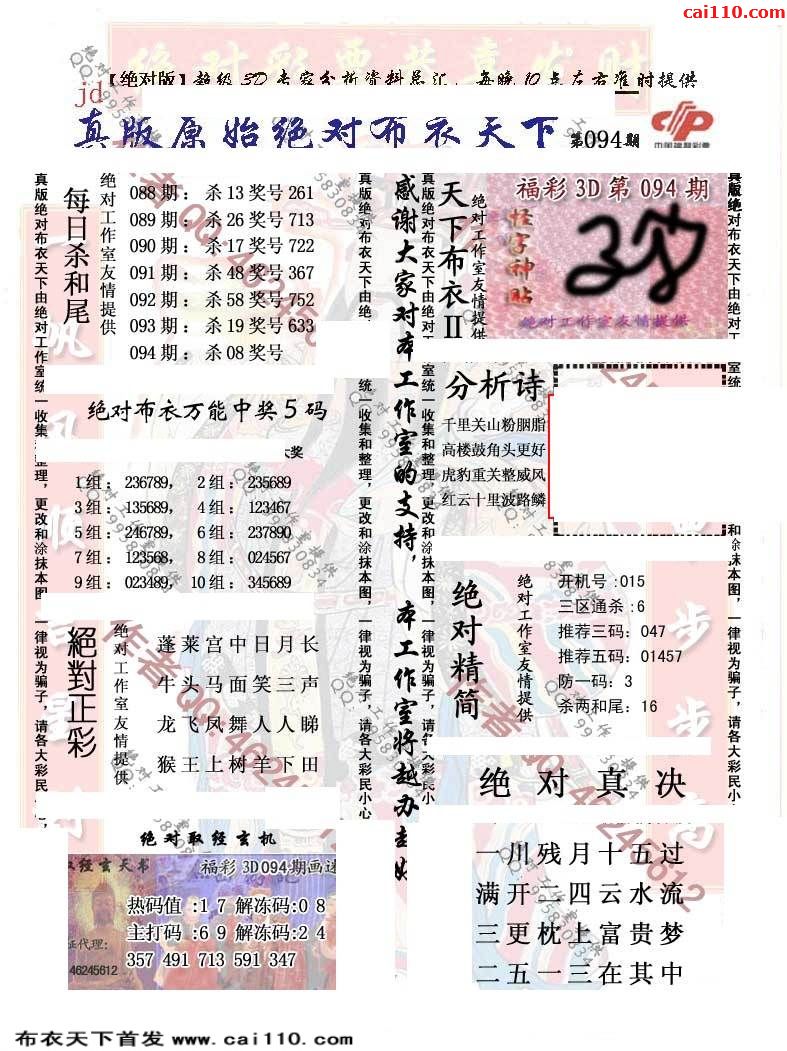 cai110.com
【绝对版】超级3D专家分析资料总汇，每晚10点左右准时提供
jd
真版原始绝对布衣天下 第094期
中国福利彩票
每日杀和尾
绝对工作室友情提供
088期：杀13奖号261
089期：杀26奖号713
090期：杀17奖号722
091期：杀48奖号367
092期：杀58奖号752
093期：杀19奖号633
094期：杀08奖号
绝对布衣万能中奖5码
1组：236789， 2组：235689
3组：135689， 4组：123467
5组：246789， 6组：237890
7组：123568， 8组：024567
9组：023489， 10组：345689
絕對正彩
绝对工作室友情提供
蓬莱宫中日月长
牛头马面笑三声
龙飞凤舞人人睇
猴王上树羊下田
绝对取经玄机
取经玄天书 福彩3D094期画迷
热码值:17解冻码:08
主打码:69解冻码:24
357 491 713 591 347
证代理：
46245612
感谢大家对本工作室的支持，本工作室将越办越好
天下布衣II
绝对工作室友情提供
福彩3D第094期
怪字神贴
绝对工作室友情提供
分析诗
千里关山粉胭脂
高楼鼓角头更好
虎豹重关整威风
红云十里波路鳞
绝对精简
绝对工作室友情提供
开机号:015
三区通杀:6
推荐三码：047
推荐五码：01457
防一码：3
杀两和尾：16
绝对真决
一川残月十五过
满开二四云水流
三更枕上富贵梦
二五一三在其中
真版绝对布衣天下由绝对工作室统一收集和整理，更改和涂抹本图，一律视为骗子，请各大彩民小心
布衣天下首发 www.cai110.com